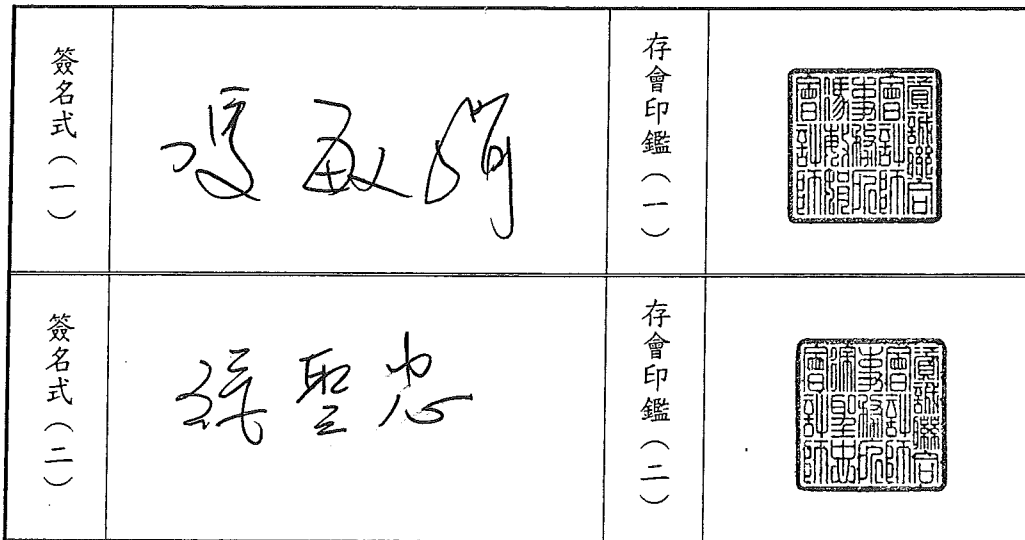 簽名式(一)
馮敏娟
存會印鑑(一)
資誠聯合
會計師
事務所
馮敏娟
會計師
簽名式(二)
聖忠
存會印鑑(二)
資誠聯合
會計師
事務所
聖忠
會計師